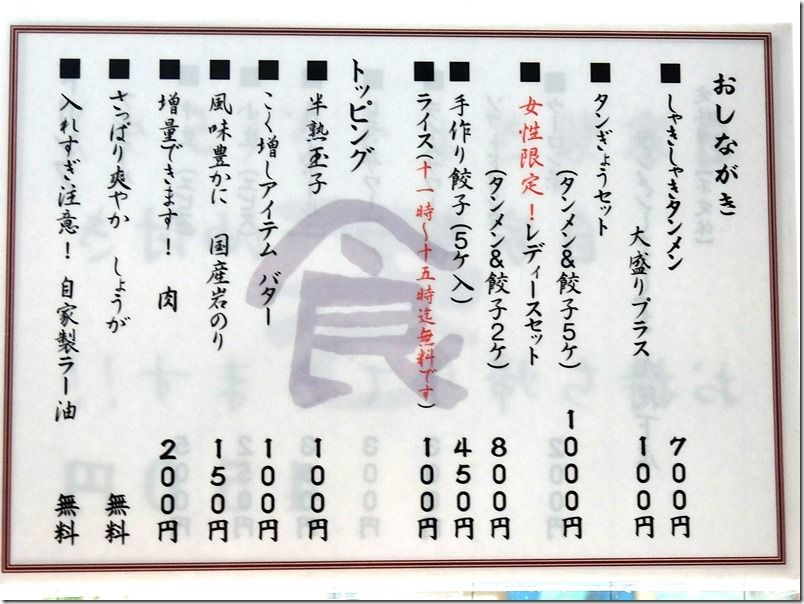 おしながき
■ しゃきしゃきタンメン 700円
大盛りプラス 100円
■ タンぎょうセット
(タンメン&餃子5ケ) 1000円
■ 女性限定！レディースセット
(タンメン&餃子2ケ) 800円
■ 手作り餃子(5ケ入) 450円
■ ライス(十一時〜十五時迄無料です) 100円
トッピング
■ 半熟玉子 100円
■ こく増しアイテム バター 100円
■ 風味豊かに 国産岩のり 150円
■ 増量できます！ 肉 200円
■ さっぱり爽やか しょうが 無料
■ 入れすぎ注意！ 自家製ラー油 無料
食